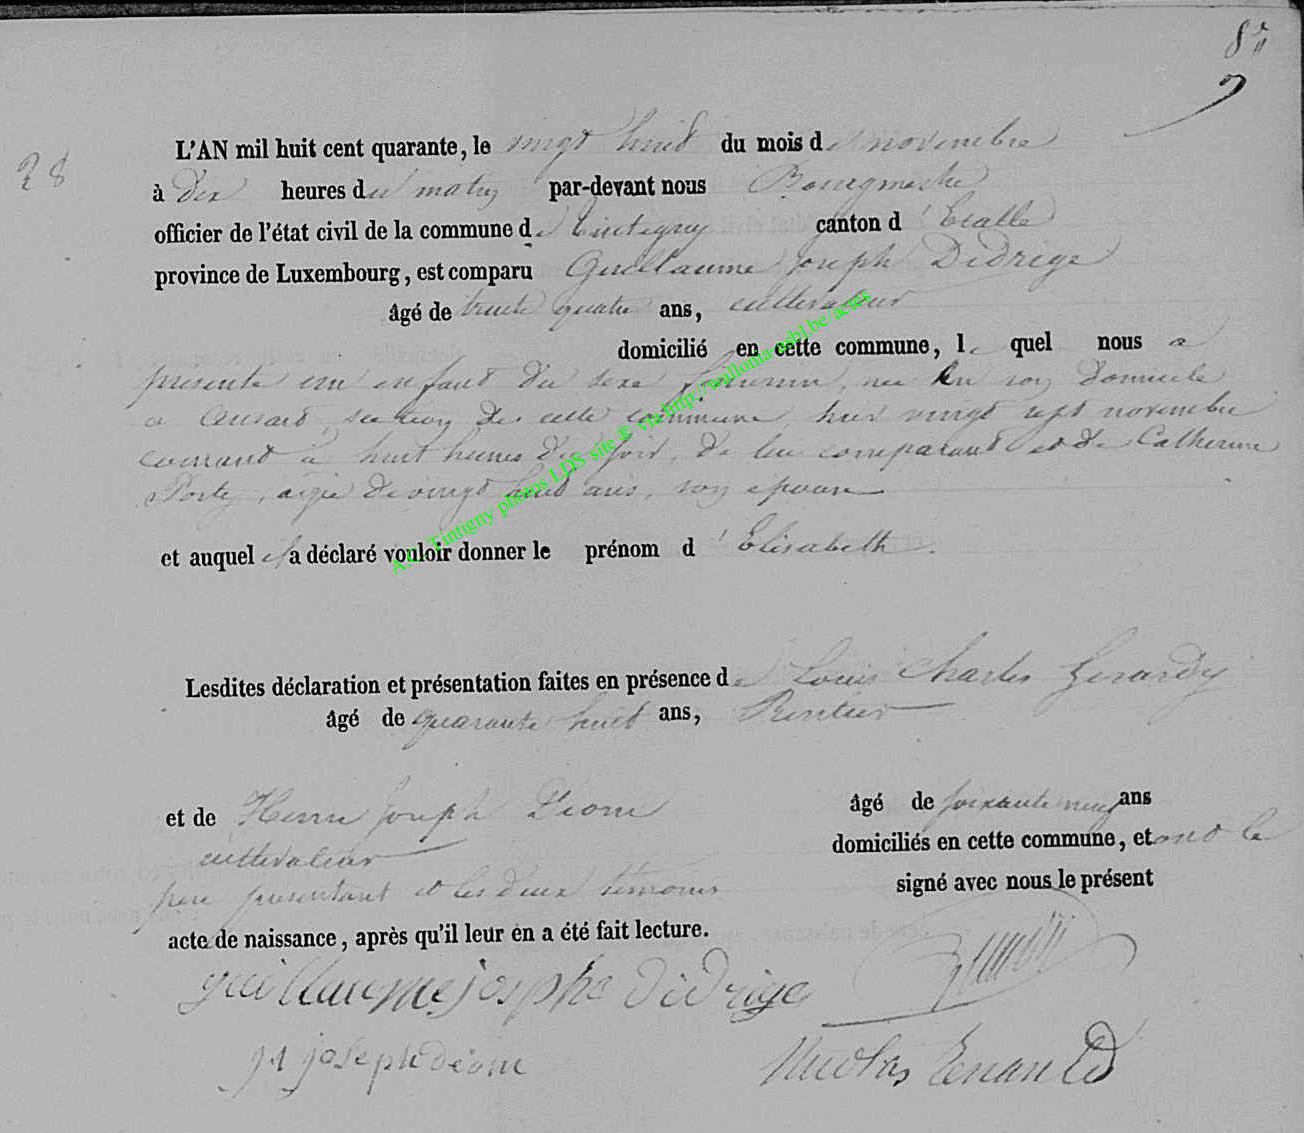 8
28
L'AN mil huit cent quarante, le vingt huit du mois de novembre
à dix heures du matin par-devant nous Bourgmestre
officier de l'état civil de la commune de Tintigny canton d'Etalle
province de Luxembourg, est comparu Guillaume Joseph Didrige
âgé de trente quatre ans, cultivateur
domicilié en cette commune, le quel nous a
présenté un enfant du sexe féminin, née en son domicile
a Ansart, section de cette commune, hier vingt sept novembre
courant à huit heures du soir, de lui comparant et de Catherine
agée de vingt huit ans, son epouse
et auquel il a déclaré vouloir donner le prénom d'Elisabeth.
Lesdites déclaration et présentation faites en présence de Louis Charles Gerardy
âgé de quarante huit ans, Rentier
et de Henri Joseph Dione âgé de soixante neuf ans
cultivateur domiciliés en cette commune, et ont le
pere présentant et les deux témoins signé avec nous le présent
acte de naissance, après qu'il leur en a été fait lecture.
guillaume josphe didrige
joseph dione
A.C. Tintigny photos LDS site ® via http://wallonia-asbl.be/actes